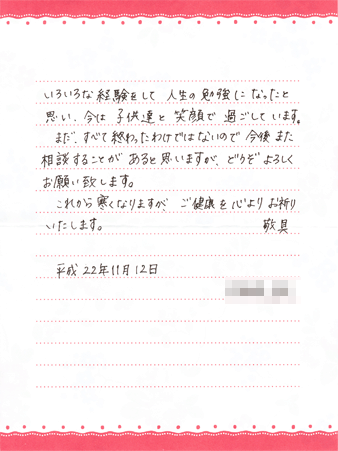 いろいろな経験をして人生の勉強になったと
思い、今は子供達と笑顔で過ごしています。
まだ、すべて終わったわけではないので今後また
相談することがあると思いますが、どうぞよろしく
お願い致します。
これから寒くなりますが、ご健康を心よりお祈り
いたします。 敬具
平成22年11月12日